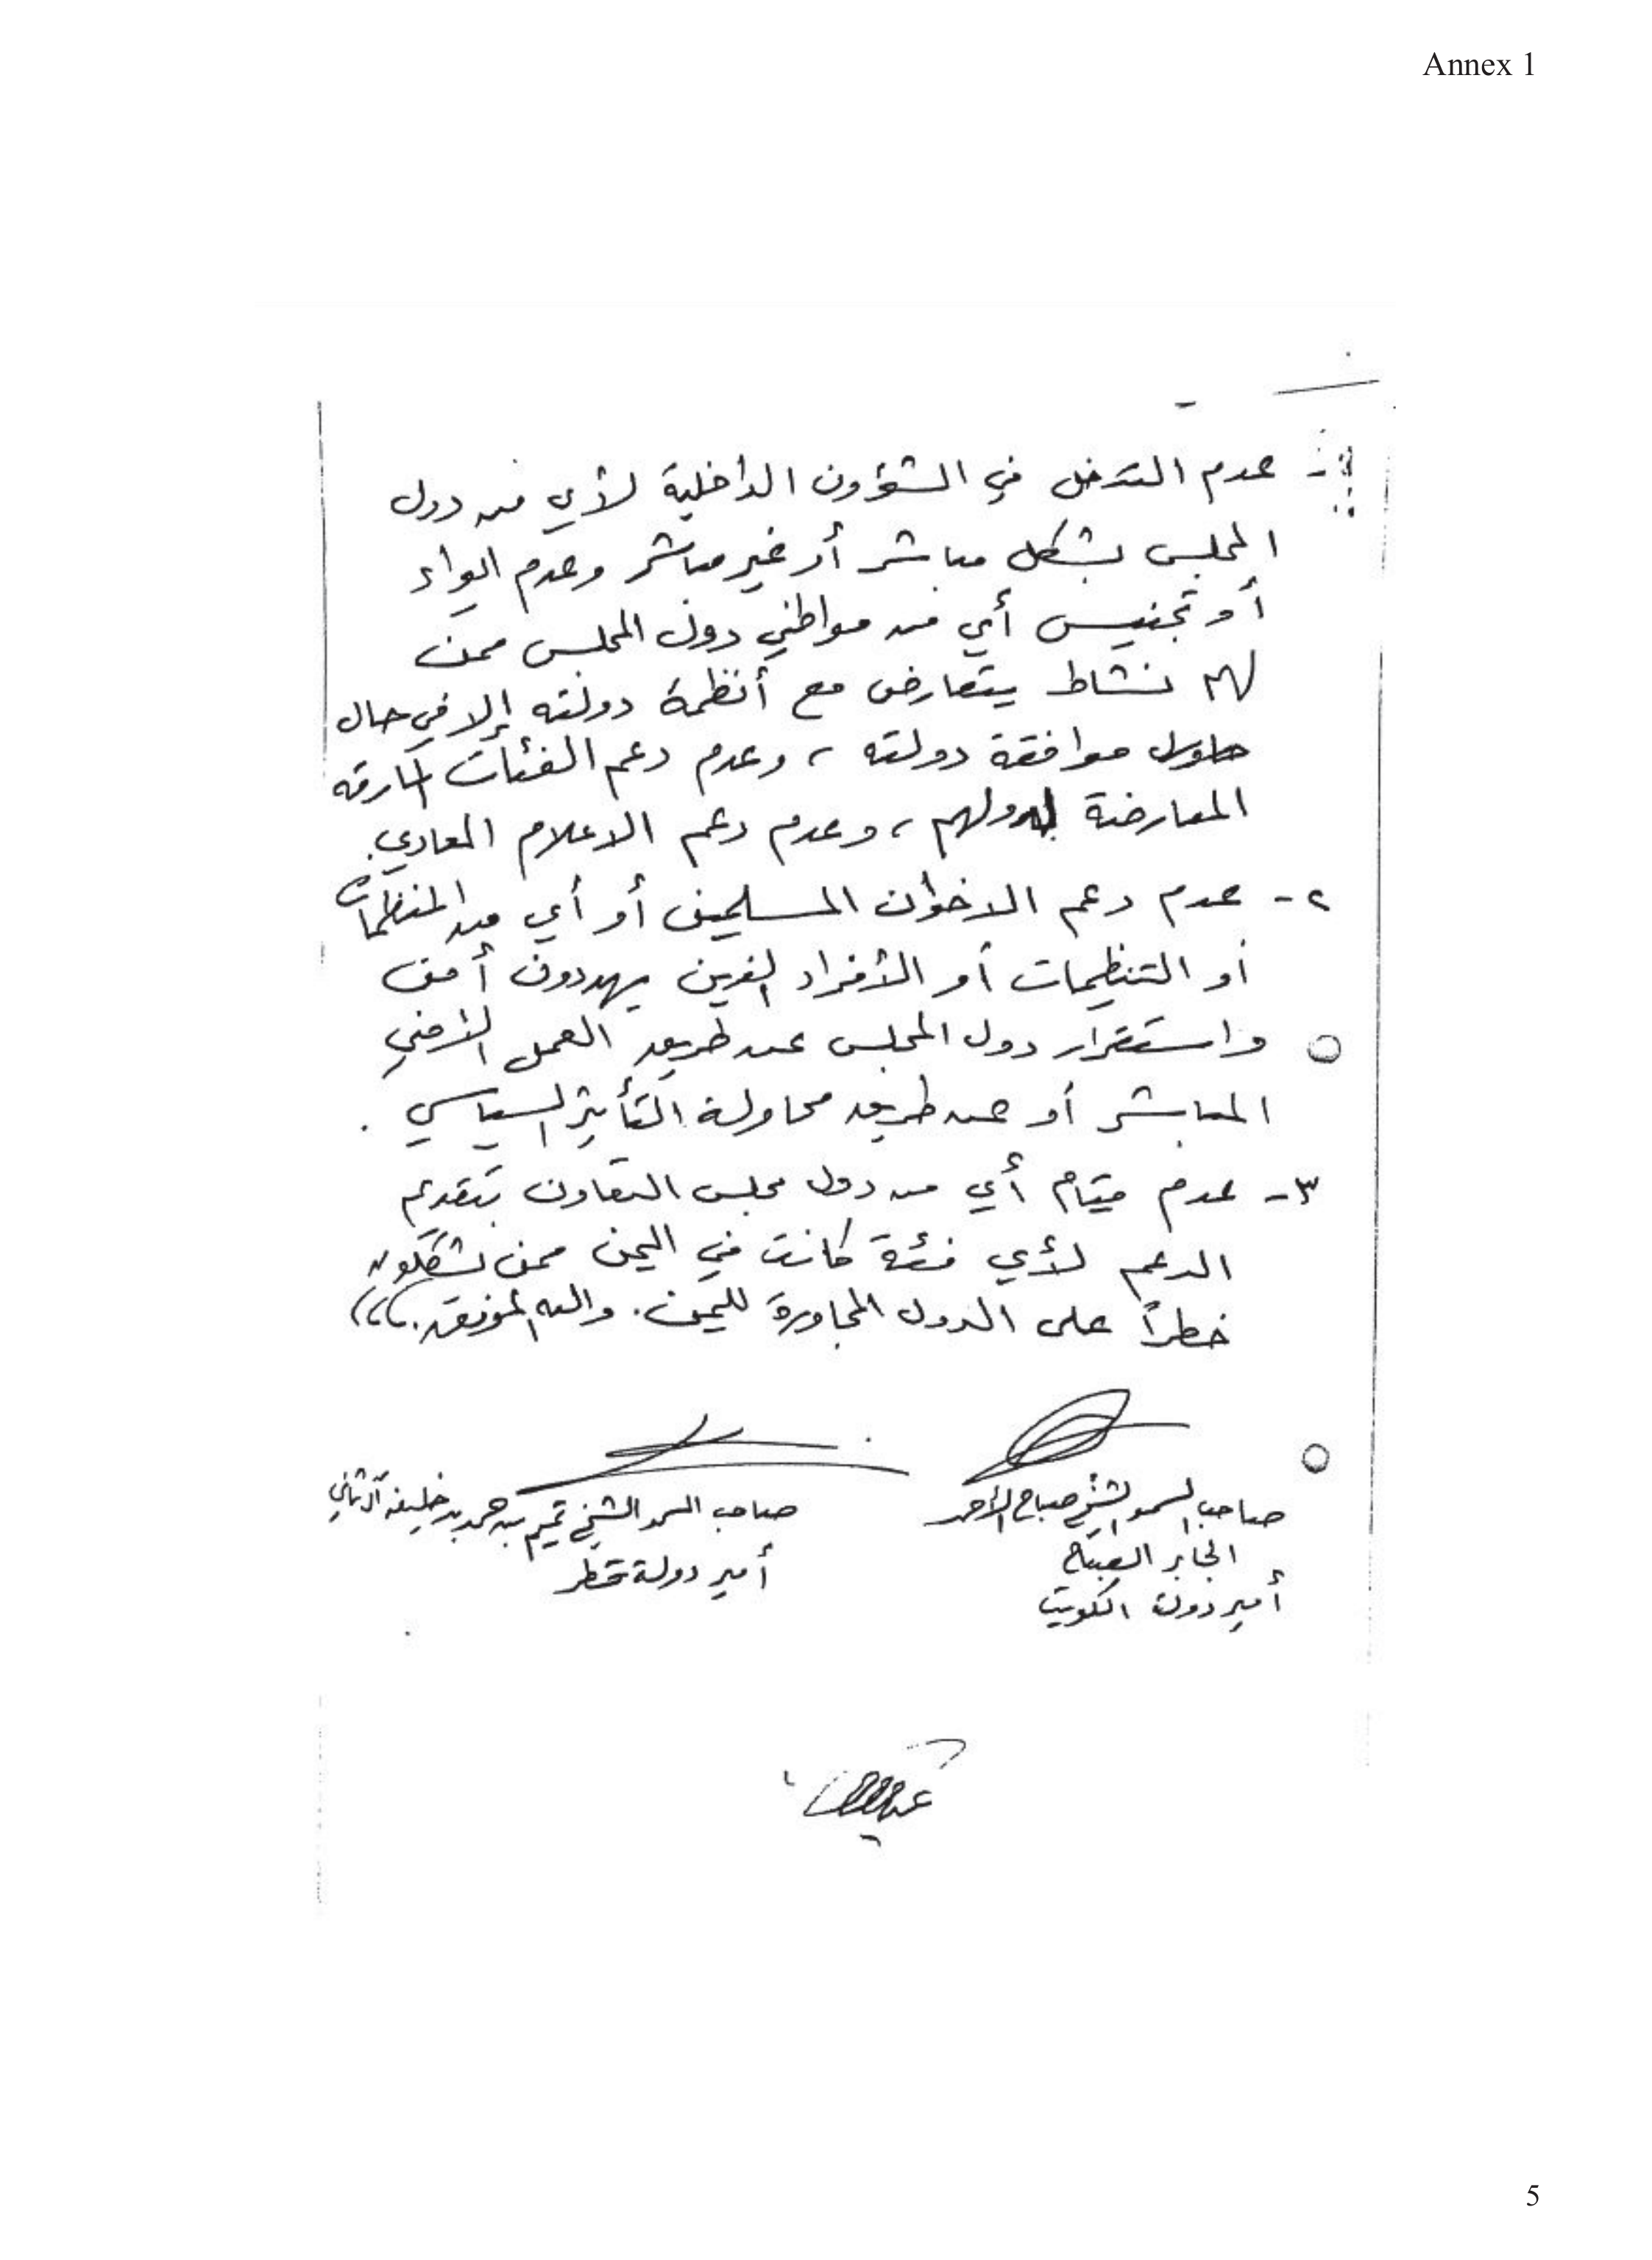 Annex 1
١- عدم التدخل في الشؤون الداخلية لأي من دول
المجلس بشكل مباشر أو غير مباشر وعدم ايواء
أو تجنيس أي من مواطني دول المجلس ممن
لهم نشاط يتعارض مع أنظمة دولته إلا في حال
موافقة دولته ، وعدم دعم الفئات المارقه
المعارضة لدولهم ، وعدم دعم الاعلام المعادي.
٢- عدم دعم الاخوان المسلمين أو أي من المنظمات
أو التنظيمات أو الأفراد الذين يهددون أمن
واستقرار دول المجلس عن طريق العمل الأمني
المباشر أو عن طريق محاولة التأثير السياسي .
٣- عدم قيام أي من دول مجلس التعاون بتقديم
الدعم لأي فئة كانت في اليمن ممن يشكلون
خطراً على الدول المجاورة لليمن. والله الموفق.،،،
صاحب السمو الشيخ صباح الأحمد
الجابر الصباح
أمير دولة الكويت
صاحب السمو الشيخ تميم بن حمد بن خليفة آل ثاني
أمير دولة قطر
5